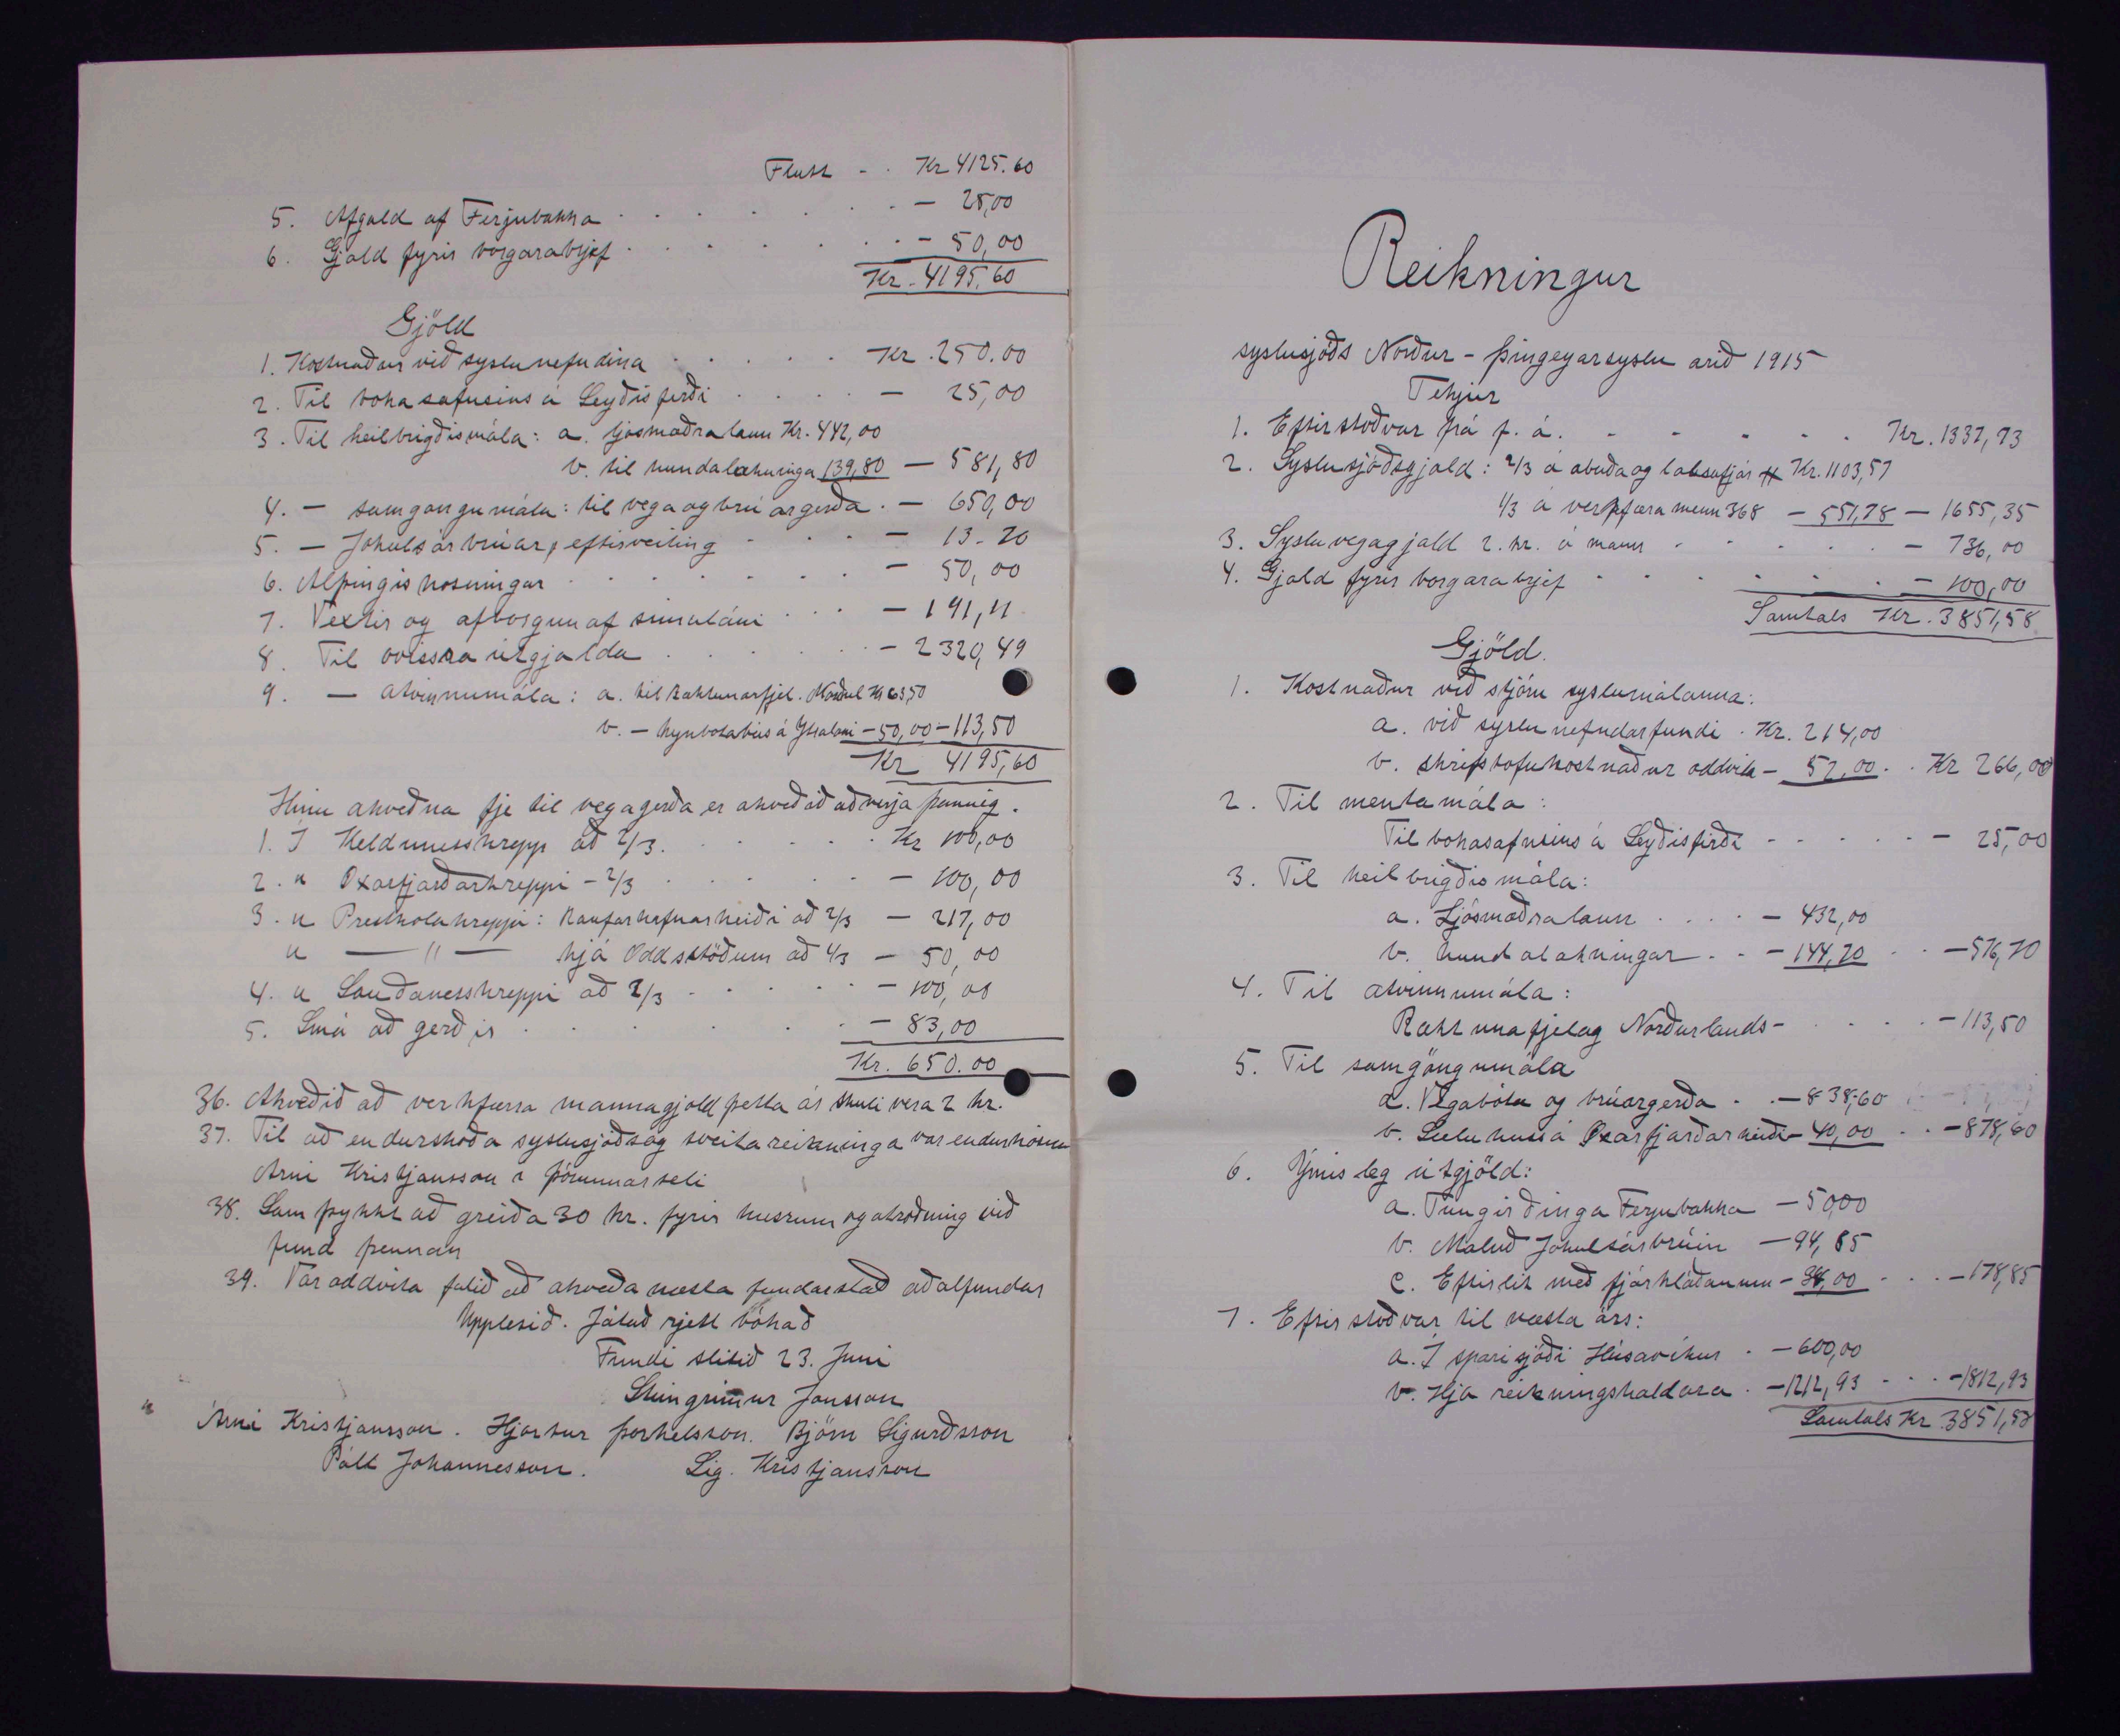 Flutt - . Kr 4125.60
5. Afgald af Ferjubakka . . . . . . . - 25,00
6. Gjald fyrir borgarabrjef . . . . . . . - 50,00
Kr. 4195.60
Gjöld
1. Kostnaður við syslunefndina . . . . . Kr. 250.00
2. Til bokasafnsins á Seyðisfirði . . . . - 25,00
3. Til heilbrigðismála: a. ljosmæðralaun Kr. 442,00
b. til hundalækninga 139,80 - 581,80
4. - samgöngumála: til vega og brúargerða . - 650,00
5. - Jökulsárbrúar, eftirveiting . . . - 13-20
6. Alþingiskosningar . . . . . . - 50,00
7. Vextir og afborgun af símaláni . . . - 191,11
8. Til ovissra útgjalda . . . . . . - 2320,49
9. - atvinnumála: a. til Ræktunarfjel. Norðurl Kr 63,50
b. - kynbótabús á Ytralóni - 50,00 - 113,50
Kr 4195,60
Hinu akveðna fje til vegagerða er akveðið að verja þannig.
1. Í Keldunesshrepp að 2/3 . . . . . . Kr 100,00
2. " Oxarfjarðarhreppi - 2/3 . . . . . - 100,00
3. " Presthólahreppi: Raufarhafnarheiði að 2/3 - 217,00
" — " — hjá Oddsstöðum að 4/3 - 50,00
4. " Sauðanesshreppi að 2/3 . . . . . - 100,00
5. Smá að gerðir . . . . . . . - 83,00
Kr. 650.00
36. Akveðið að verkfærra mannagjald þetta ár skuli vera 2 kr.
37. Til að endurskoða syslusjóðs og sveitareikninga var endurkosinn
Arni Kristjansson í Þórunnarseli
38. Samþykkt að greiða 30 kr. fyrir husrum og átroðning við
fund þennan
39. Var oddvita falið að akveða næsta fundarstað aðalfundar
Upplesið. Játað rjett bókað
Fundi slitið 23. Juni
Steingrimur Jonsson
Árni Kristjansson. Hjörtur Þorkelsson. Björn Sigurðsson
Páll Johannesson. Sig. Kristjansson
Reikningur
syslusjóðs Norður-Þingeyarsyslu arið 1915
Tekjur
1. Eftirstöðvar frá f. á. . . . . . . Kr. 1337,23
2. Syslusjóðsgjald: 2/3 á abuða og lausafjár Kr. 1103,57
1/3 á verkfæra menn 368 - 551,78 - 1655,35
3. Sysluvegagjald 2. kr. á mann . . . . . - 736,00
4. Gjald fyrir borgarabrjef . . . . . . . - 100,00
Samtals Kr. 3851,58
Gjöld.
1. Kostnaður við stjórn syslumálanna:
a. við syslunefndarfundi . Kr. 214,00
b. skrifstofukostnaður oddvita - 52,00 . . Kr 266,00
2. Til mentamála:
Til bokasafnsins á Seyðisfirði - - - - - - 25,00
3. Til heilbrigðismála:
a. Ljósmæðralaun . . . . - 432,00
b. hundalækningar . . - 144,70 . . - 576,70
4. Til atvinnumála:
Ræktunafjelag Norðurlands - . . . . - 113,50
5. Til samgöngumála
a. Vegabóta og brúargerða . . - 838,60
b. Sæluhuss á Oxarfjarðarheiði - 40,00 . . - 878,60
6. Ýmisleg útgjöld:
a. Túngirðinga Ferjubakka - 50,00
b. Maluð Jökulsárbrúin - 94,85
c. Eftirlit með fjárkláðanum - 34,00 . . . - 178,85
7. Eftirstöðvar til næsta árs:
a. Í sparisjóði Húsavíkur . - 600,00
b. Hjá reikningshaldara . - 1212,93 . . . - 1812,93
Samtals Kr 3851,58